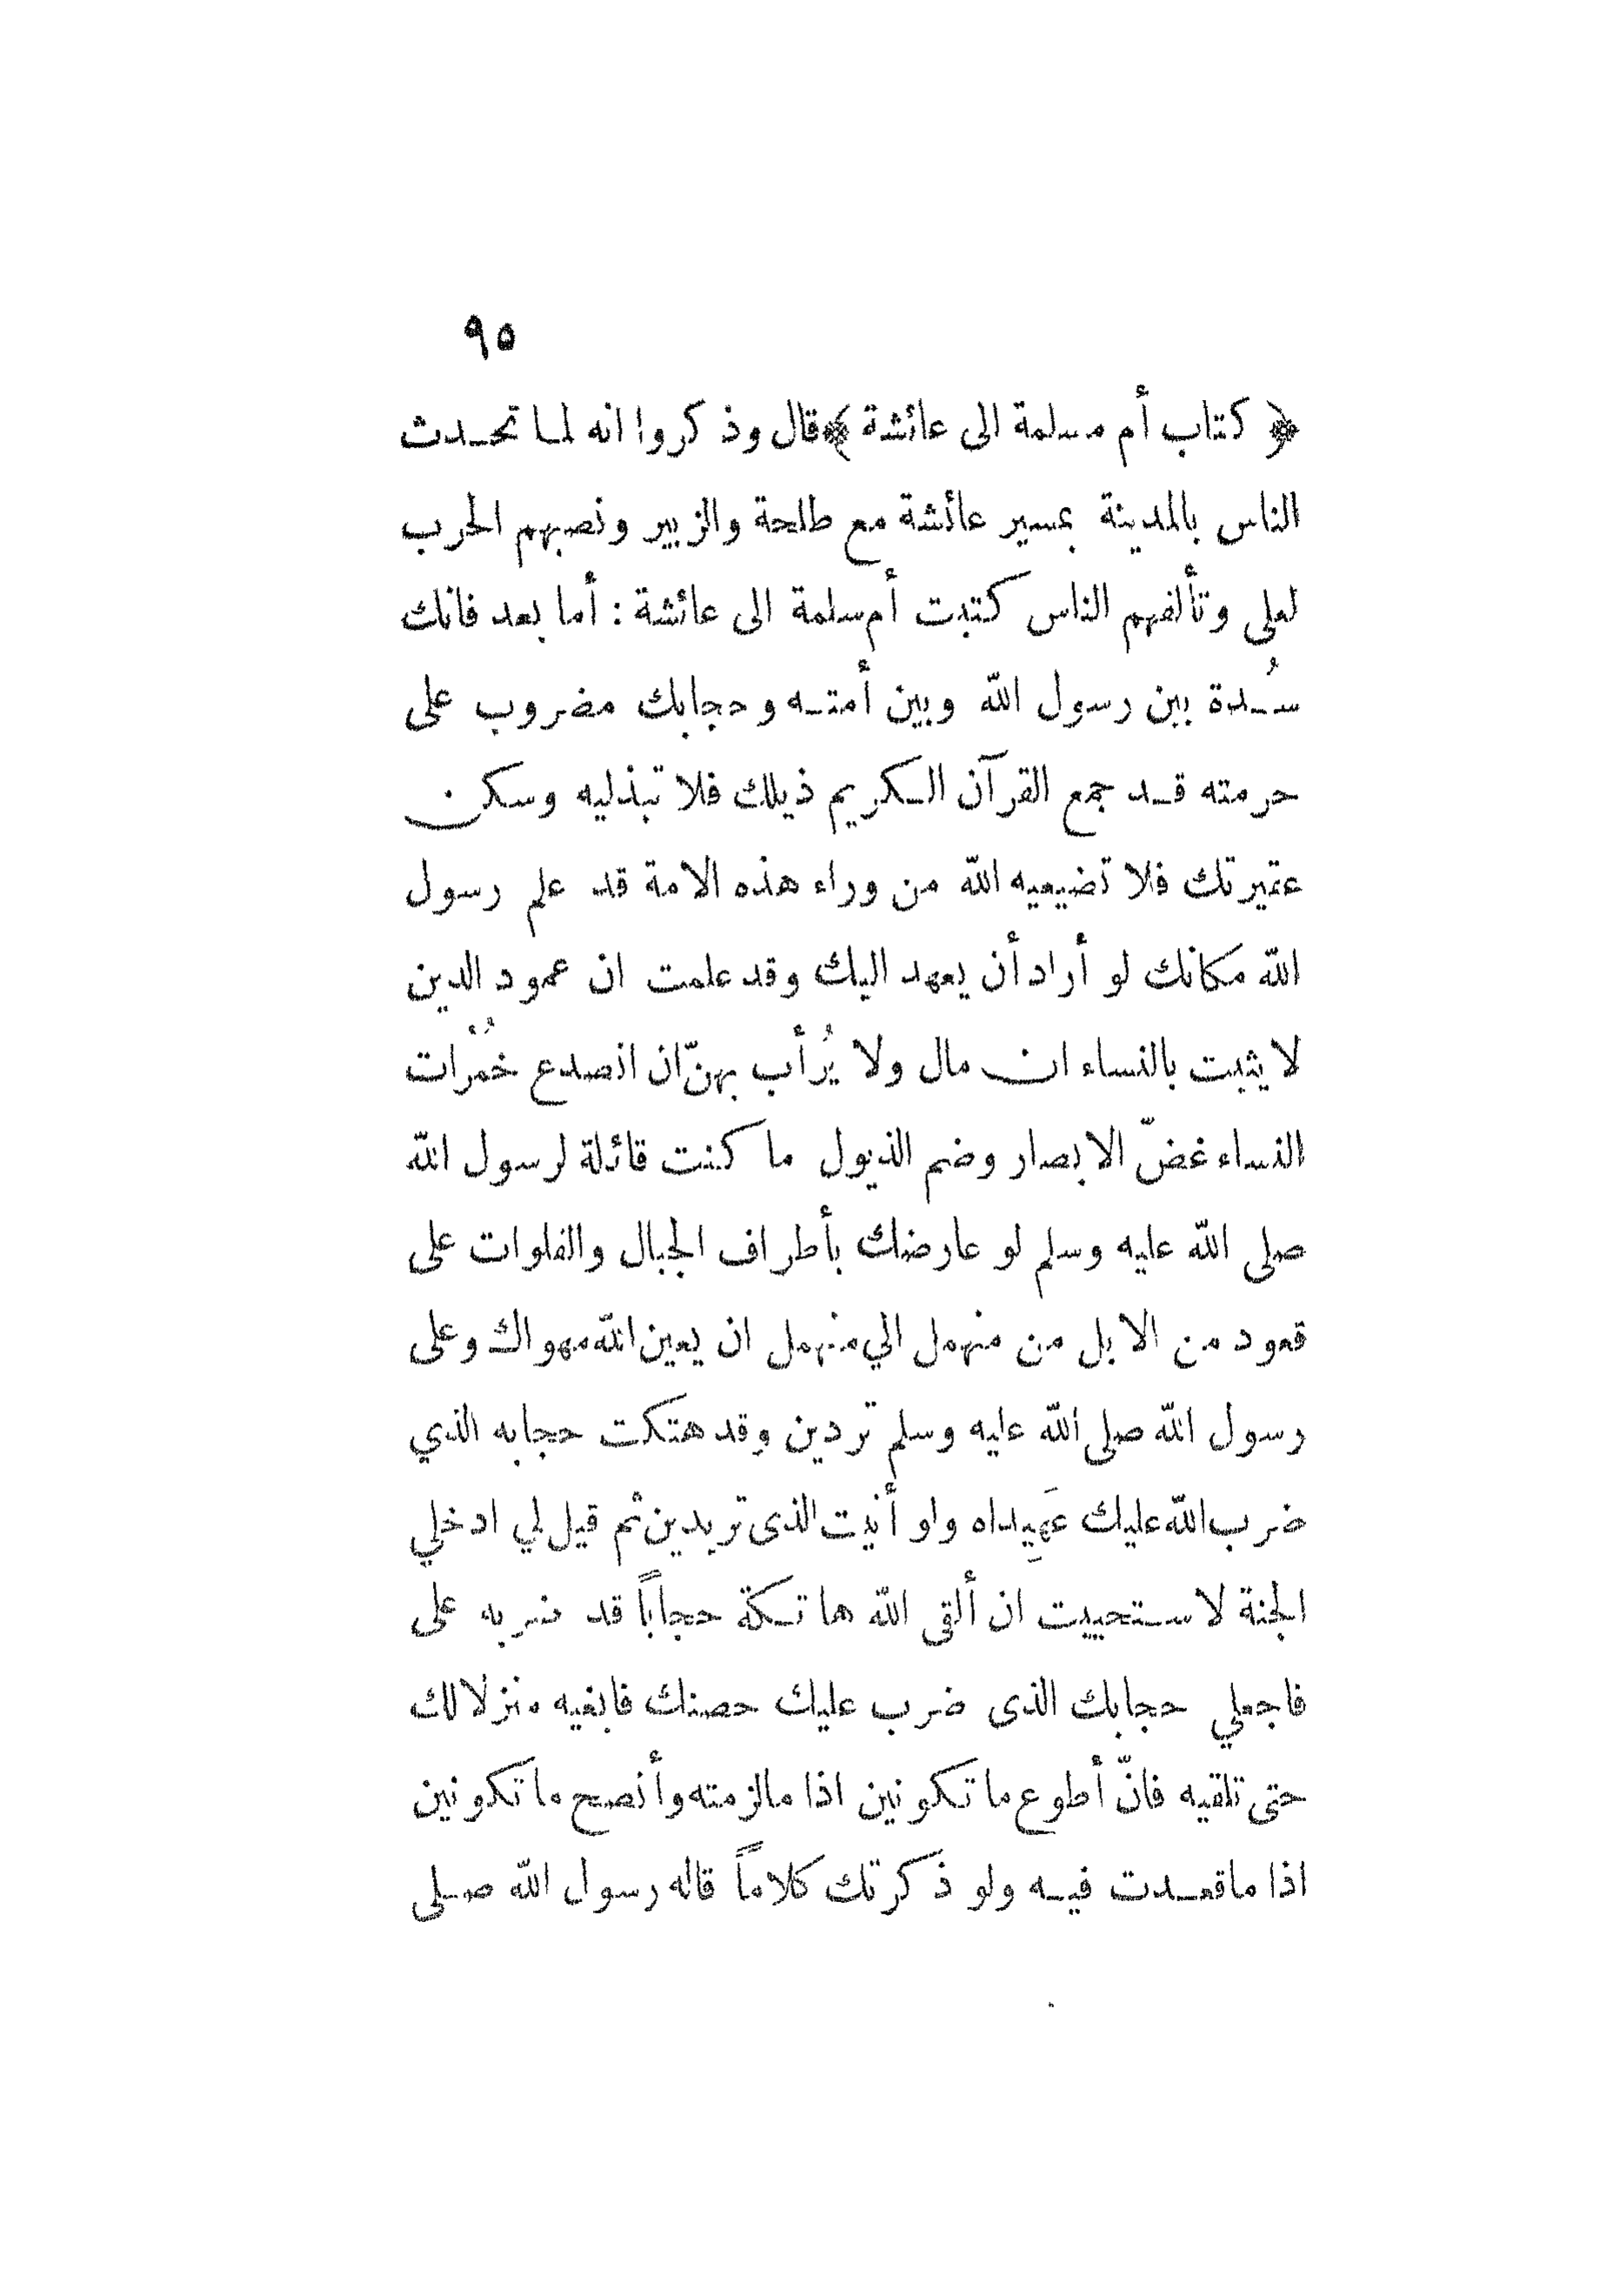 ٩٥
﴿ كتاب أم سلمة الى عائشة ﴾ قال وذكروا انه لما تحدث
الناس بالمدينة بمسير عائشة مع طلحة والزبير ونصبهم الحرب
لعلى وتألفهم الناس كتبت أم سلمة الى عائشة : أما بعد فانك
سُدة بين رسول الله وبين أمته وحجابك مضروب على
حرمته قد جمع القرآن الكريم ذيلك فلا تبذليه وسكن
عقيرتك فلا تضيعيه الله من وراء هذه الامة قد علم رسول
الله مكانك لو أراد أن يعهد اليك وقد علمت ان عمود الدين
لا يثبت بالنساء ان مال ولا يُرأب بهنّ ان انصدع خُمْرات
النساء غضّ الابصار وضم الذيول ما كنت قائلة لرسول الله
صلى الله عليه وسلم لو عارضك بأطراف الجبال والفلوات على
قعود من الابل من منهل الي منهل ان بعين الله مهواك وعلى
رسول الله صلى الله عليه وسلم تردين وقد هتكت حجابه الذي
ضرب الله عليك عَهِيداه ولو أتيت الذى تريدين ثم قيل لي ادخلي
الجنة لاستحييت ان ألقى الله هاتكة حجاباً قد ضربه على
فاجعلي حجابك الذى ضرب عليك حصنك فابغيه منزلا لك
حتى تلقيه فانّ أطوع ما تكونين اذا مالزمته وأنصح ما تكونين
اذا ما قعدت فيه ولو ذكرتك كلاماً قاله رسول الله صلى